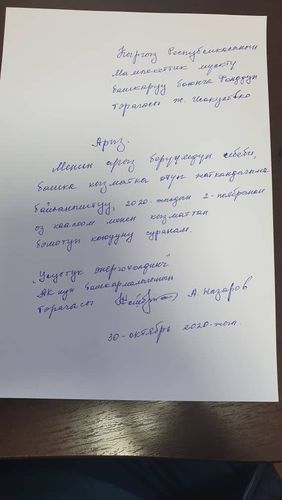 Кыргыз Республикасынын
Мамлекеттик мүлктү
башкаруу боюнча Фондун
төрагасы
Арыз.
Менин арыз беруумдун себеби,
башка кызматка отуп жаткандыгыма
байланыштуу, 2020-жылдын 2-ноябрынан
оз каалоом менен кызматтан
бошотуп коюуну суранам.
"Улуттук энергохолдинг"
ААК нун башкармалыгынын
Торагасы А Назаров
30-октябрь 2020-жыл.